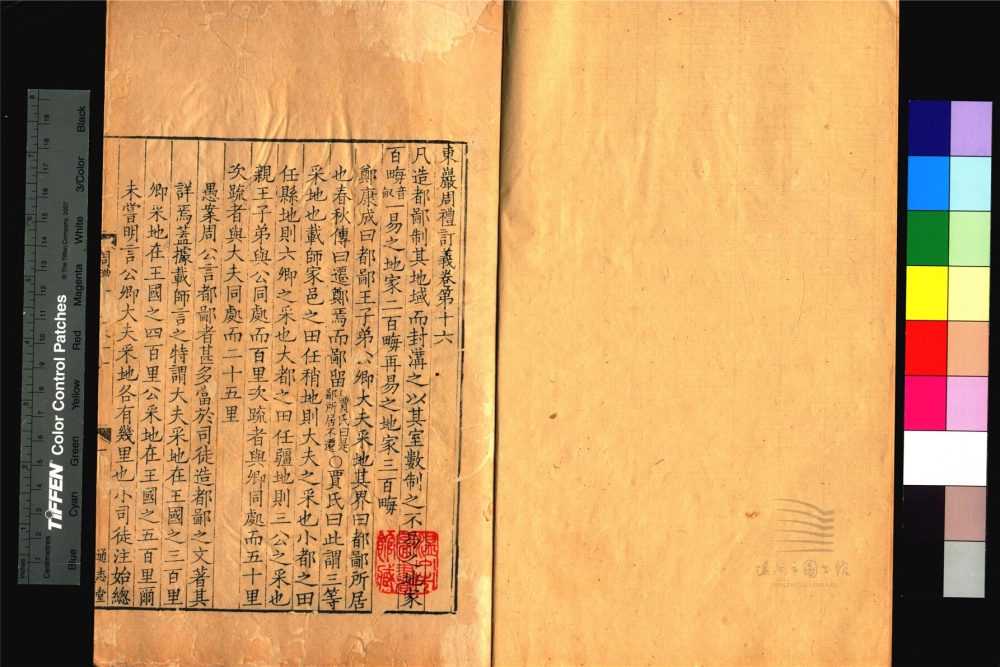 東巖周禮訂義卷第十六
凡造都鄙制其地域而封溝之以其室數制之不易之地家
百畮音畝一易之地家二百畮再易之地家三百畮
鄭康成曰都鄙王子弟公卿大夫采地其界曰都鄙所居
也春秋傳曰遷鄭焉而鄙留賈氏曰是鄙所居不遷○賈氏曰此謂三等
采地也載師家邑之田任稍地則大夫之采也小都之田
任縣地則六卿之采也大都之田任疆地則三公之采也
親王子弟與公同處而百里次疏者與卿同處而五十里
次疏者與大夫同處而二十五里
愚案周公言都鄙者甚多當於司徒造都鄙之文著其
詳焉蓋據載師言之特謂大夫采地在王國之三百里
卿采地在王國之四百里公采地在王國之五百里爾
未嘗明言公卿大夫采地各有幾里也小司徒注始總
通志堂
溫州市圖書館藏
温州市图书馆
WENZHOU LIBRARY
TIFFEN Color Control Patches
© The Tiffen Company, 2007
Inches
Centimetres
Blue Cyan Green Yellow Red Magenta White 3/Color Black